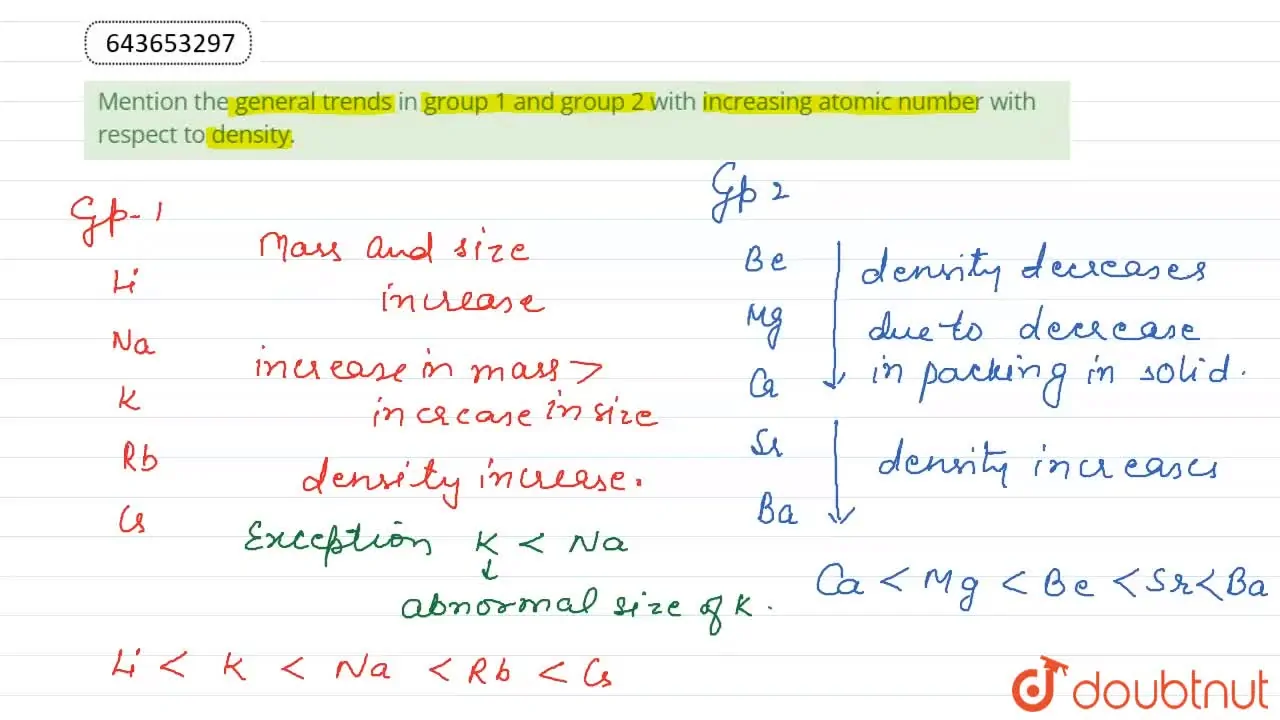 643653297
Mention the general trends in group 1 and group 2 with increasing atomic number with
respect to density.
Gp-1
Li
Na
K
Rb
Cs
Mass and size
increase
increase in mass >
increase in size
density increase.
Exception K < Na
↓
abnormal size of K.
Li < K < Na < Rb < Cs
Gp 2
Be
Mg
Ca
Sr
Ba
density decreases
due to decrease
in packing in solid.
density increases
Ca < Mg < Be < Sr < Ba
doubtnut